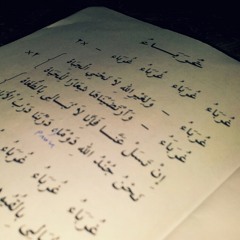 غُرَبَاءُ
غُرَبَاءُ - غُرَبَاءُ - ×٢
غُرَبَاءُ - وَلِغَيْرِ اللهِ لَا نَحْنِي الْجِبَاه
غُرَبَاءُ - وَارْتَضَيْنَاهَا شِعَارًا لِلْحَيَاة
×٢
إِنْ تَسَلْ عَنَّا فَإِنَّا لَا نُبَالِي بِالطُّغَاة
نَحْنُ جُنْدُ اللهِ دَوْمًا دَرْبُنَا دَرْبُ
غُرَبَاءُ
غُرَبَاءُ